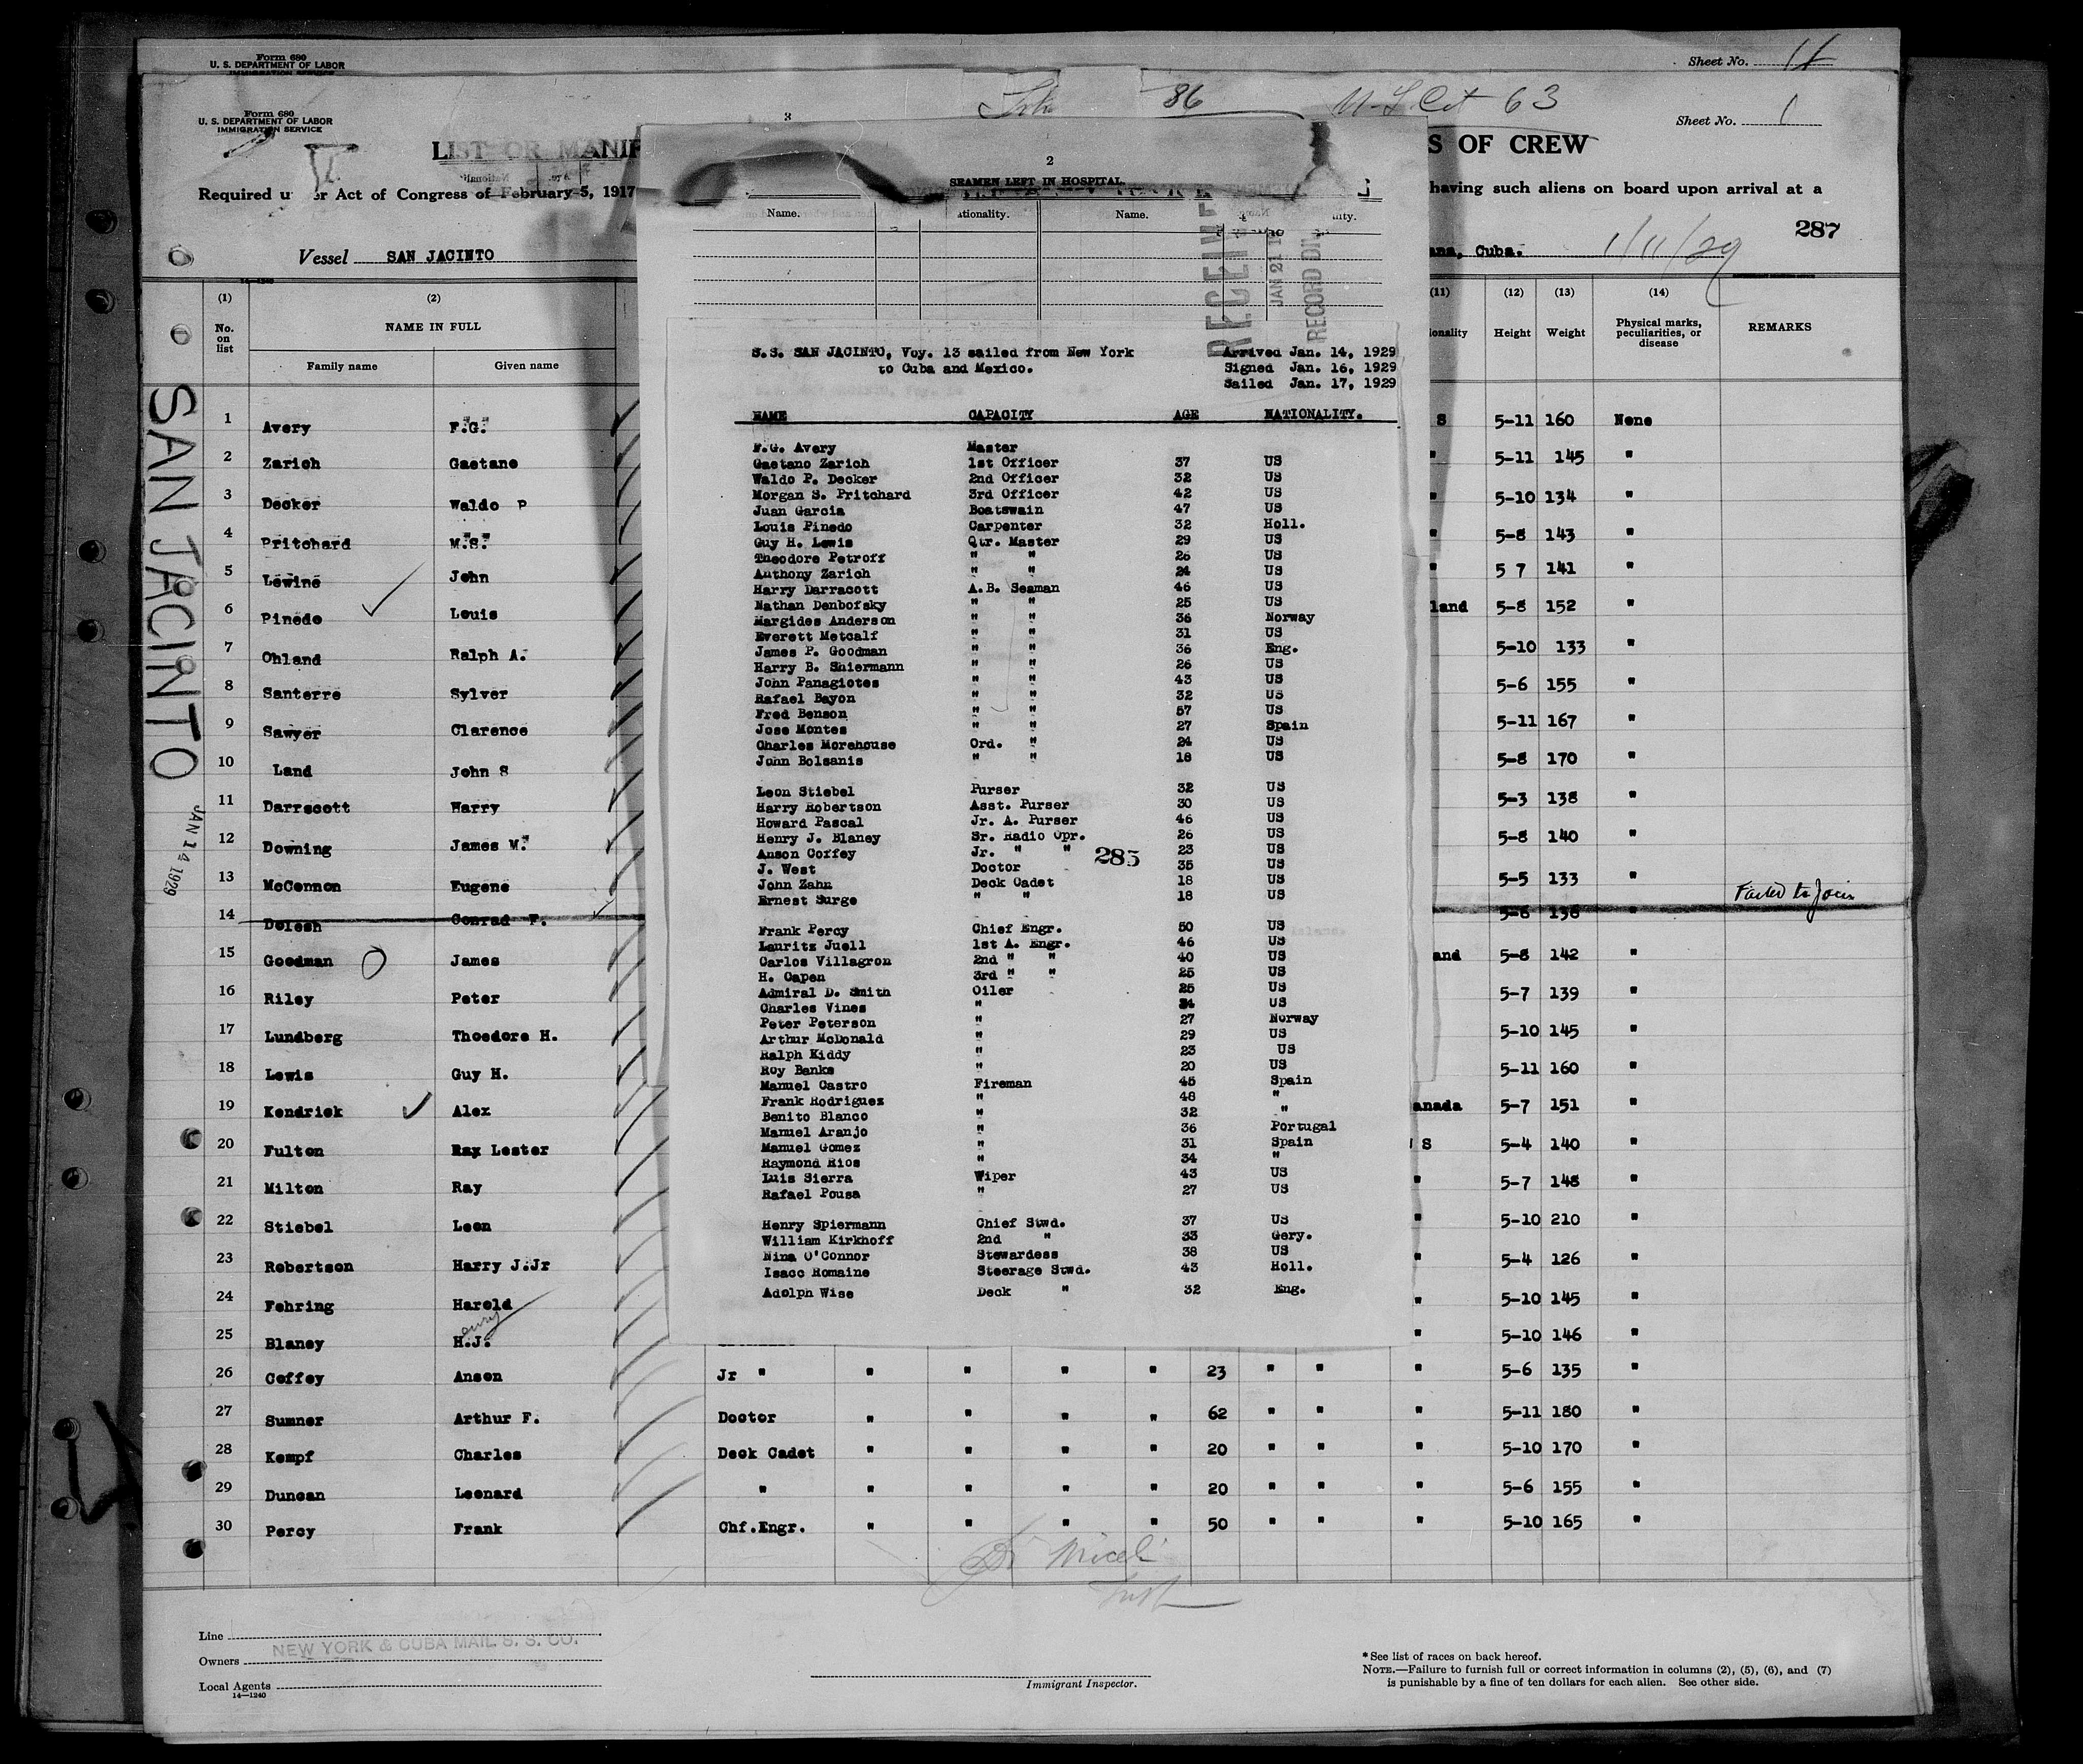 Form 680
U. S. DEPARTMENT OF LABOR
IMMIGRATION SERVICE
Sheet No. 
Form 680
U. S. DEPARTMENT OF LABOR
IMMIGRATION SERVICE
3
86
U.S. Cit 63
Sheet No. 1
LIST OR MANIF
S OF CREW
Required u er Act of Congress of February 5, 1917
having such aliens on board upon arrival at a
287
Vessel SAN JACINTO
ana, Cuba. 1/11/29
2
SEAMEN LEFT IN HOSPITAL
Name. ationality. Name. ity.
RECEIVE
JAN 21 1
RECORD DI
(1) (2) (11) (12) (13) (14)
No. on list NAME IN FULL ionality Height Weight Physical marks, peculiarities, or disease REMARKS
Family name Given name
SAN JACINTO
JAN 14 1929
S.S. SAN JACINTO, Voy. 13 sailed from New York
to Cuba and Mexico.
Arrived Jan. 14, 1929
Signed Jan. 16, 1929
Sailed Jan. 17, 1929
NAME CAPACITY AGE NATIONALITY.
F.G. Avery Master
Gaetano Zarich 1st Officer 37 US
Waldo P. Decker 2nd Officer 32 US
Morgan S. Pritchard 3rd Officer 42 US
Juan Garcia Boatswain 47 US
Louis Pinedo Carpenter 32 Holl.
Guy H. Lewis Qtr. Master 29 US
Theodore Petroff " " 26 US
Anthony Zarich " " 24 US
Harry Darracott A.B. Seaman 46 US
Nathan Denbofsky " " 25 US
Margides Anderson " " 36 Norway
Everett Metcalf " " 31 US
James P. Goodman " " 36 Eng.
Harry B. Shiermann " " 26 US
John Panagiotes " " 43 US
Rafael Bayon " " 32 US
Fred Benson " " 57 US
Jose Montes " " 27 Spain
Charles Morehouse Ord. " 24 US
John Bolsanis " " 18 US
Leon Stiebel Purser 32 US
Harry Robertson Asst. Purser 30 US
Howard Pascal Jr. A. Purser 46 US
Henry J. Blaney Sr. Radio Opr. 26 US
Anson Coffey Jr. " " 23 US
285
J. West Doctor 35 US
John Zahn Deck Cadet 18 US
Ernest Surge " " 18 US
Frank Percy Chief Engr. 50 US
Lauritz Juell 1st A. Engr. 46 US
Carlos Villagron 2nd " " 40 US
H. Capen 3rd " " 25 US
Admiral D. Smith Oiler 25 US
Charles Vines " 34 US
Peter Peterson " 27 Norway
Arthur McDonald " 29 US
Ralph Kiddy " 23 US
Roy Banks " 20 US
Manuel Castro Fireman 45 Spain
Frank Rodriguez " 48 "
Benito Blanco " 32 "
Manuel Aranjo " 36 Portugal
Manuel Gomez " 31 Spain
Raymond Rios " 34 "
Luis Sierra Wiper 43 US
Rafael Pousa " 27 US
Henry Spiermann Chief Stwd. 37 US
William Kirkhoff 2nd " 33 Gery.
Nina O'Connor Stewardess 38 US
Isacc Romaine Steerage Stwd. 43 Holl.
Adolph Wise Deck " 32 Eng.
1 Avery F.G. S 5-11 160 None
2 Zarich Gaetano " 5-11 145 "
3 Decker Waldo P " 5-10 134 "
4 Pritchard M.S. " 5-8 143 "
5 Lewine John " 5 7 141 "
6 Pinedo Louis land 5-8 152 "
7 Ohland Ralph A. 5-10 133 "
8 Santerre Sylver 5-6 155 "
9 Sawyer Clarence 5-11 167 "
10 Land John S 5-8 170 "
11 Darrscott Harry 5-3 138 "
12 Downing James M. 5-8 140 "
13 McCennon Eugene 5-5 133 "
14 Delesh Conrad F. 5-6 136 " Failed to Join
15 Goodman James and 5-8 142 "
16 Riley Peter 5-7 139 "
17 Lundberg Thoedore H. 5-10 145 "
18 Lewis Guy H. 5-11 160 "
19 Kendrick Alex anada 5-7 151 "
20 Fulton Ray Lester S 5-4 140 "
21 Milton Ray " 5-7 148 "
22 Stiebel Leon " 5-10 210 "
23 Robertson Harry J.Jr " 5-4 126 "
24 Fehring Harold " 5-10 145 "
enry
25 Blaney H.J. " 5-10 146 "
26 Coffey Anson Jr " " " " " 23 " " " 5-6 135 "
27 Sumner Arthur F. Doctor " " " " 62 " " " 5-11 180 "
28 Kempf Charles Deck Cadet " " " " 20 " " " 5-10 170 "
29 Duncan Leonard " " " " " 20 " " " 5-6 155 "
30 Percy Frank Chf.Engr. " " " " 50 " " " 5-10 165 "
Line
NEW YORK & CUBA MAIL S. S. CO.
Owners
Local Agents
14—1240
Immigrant Inspector.
* See list of races on back hereof.
NOTE.—Failure to furnish full or correct information in columns (2), (5), (6), and (7)
is punishable by a fine of ten dollars for each alien. See other side.